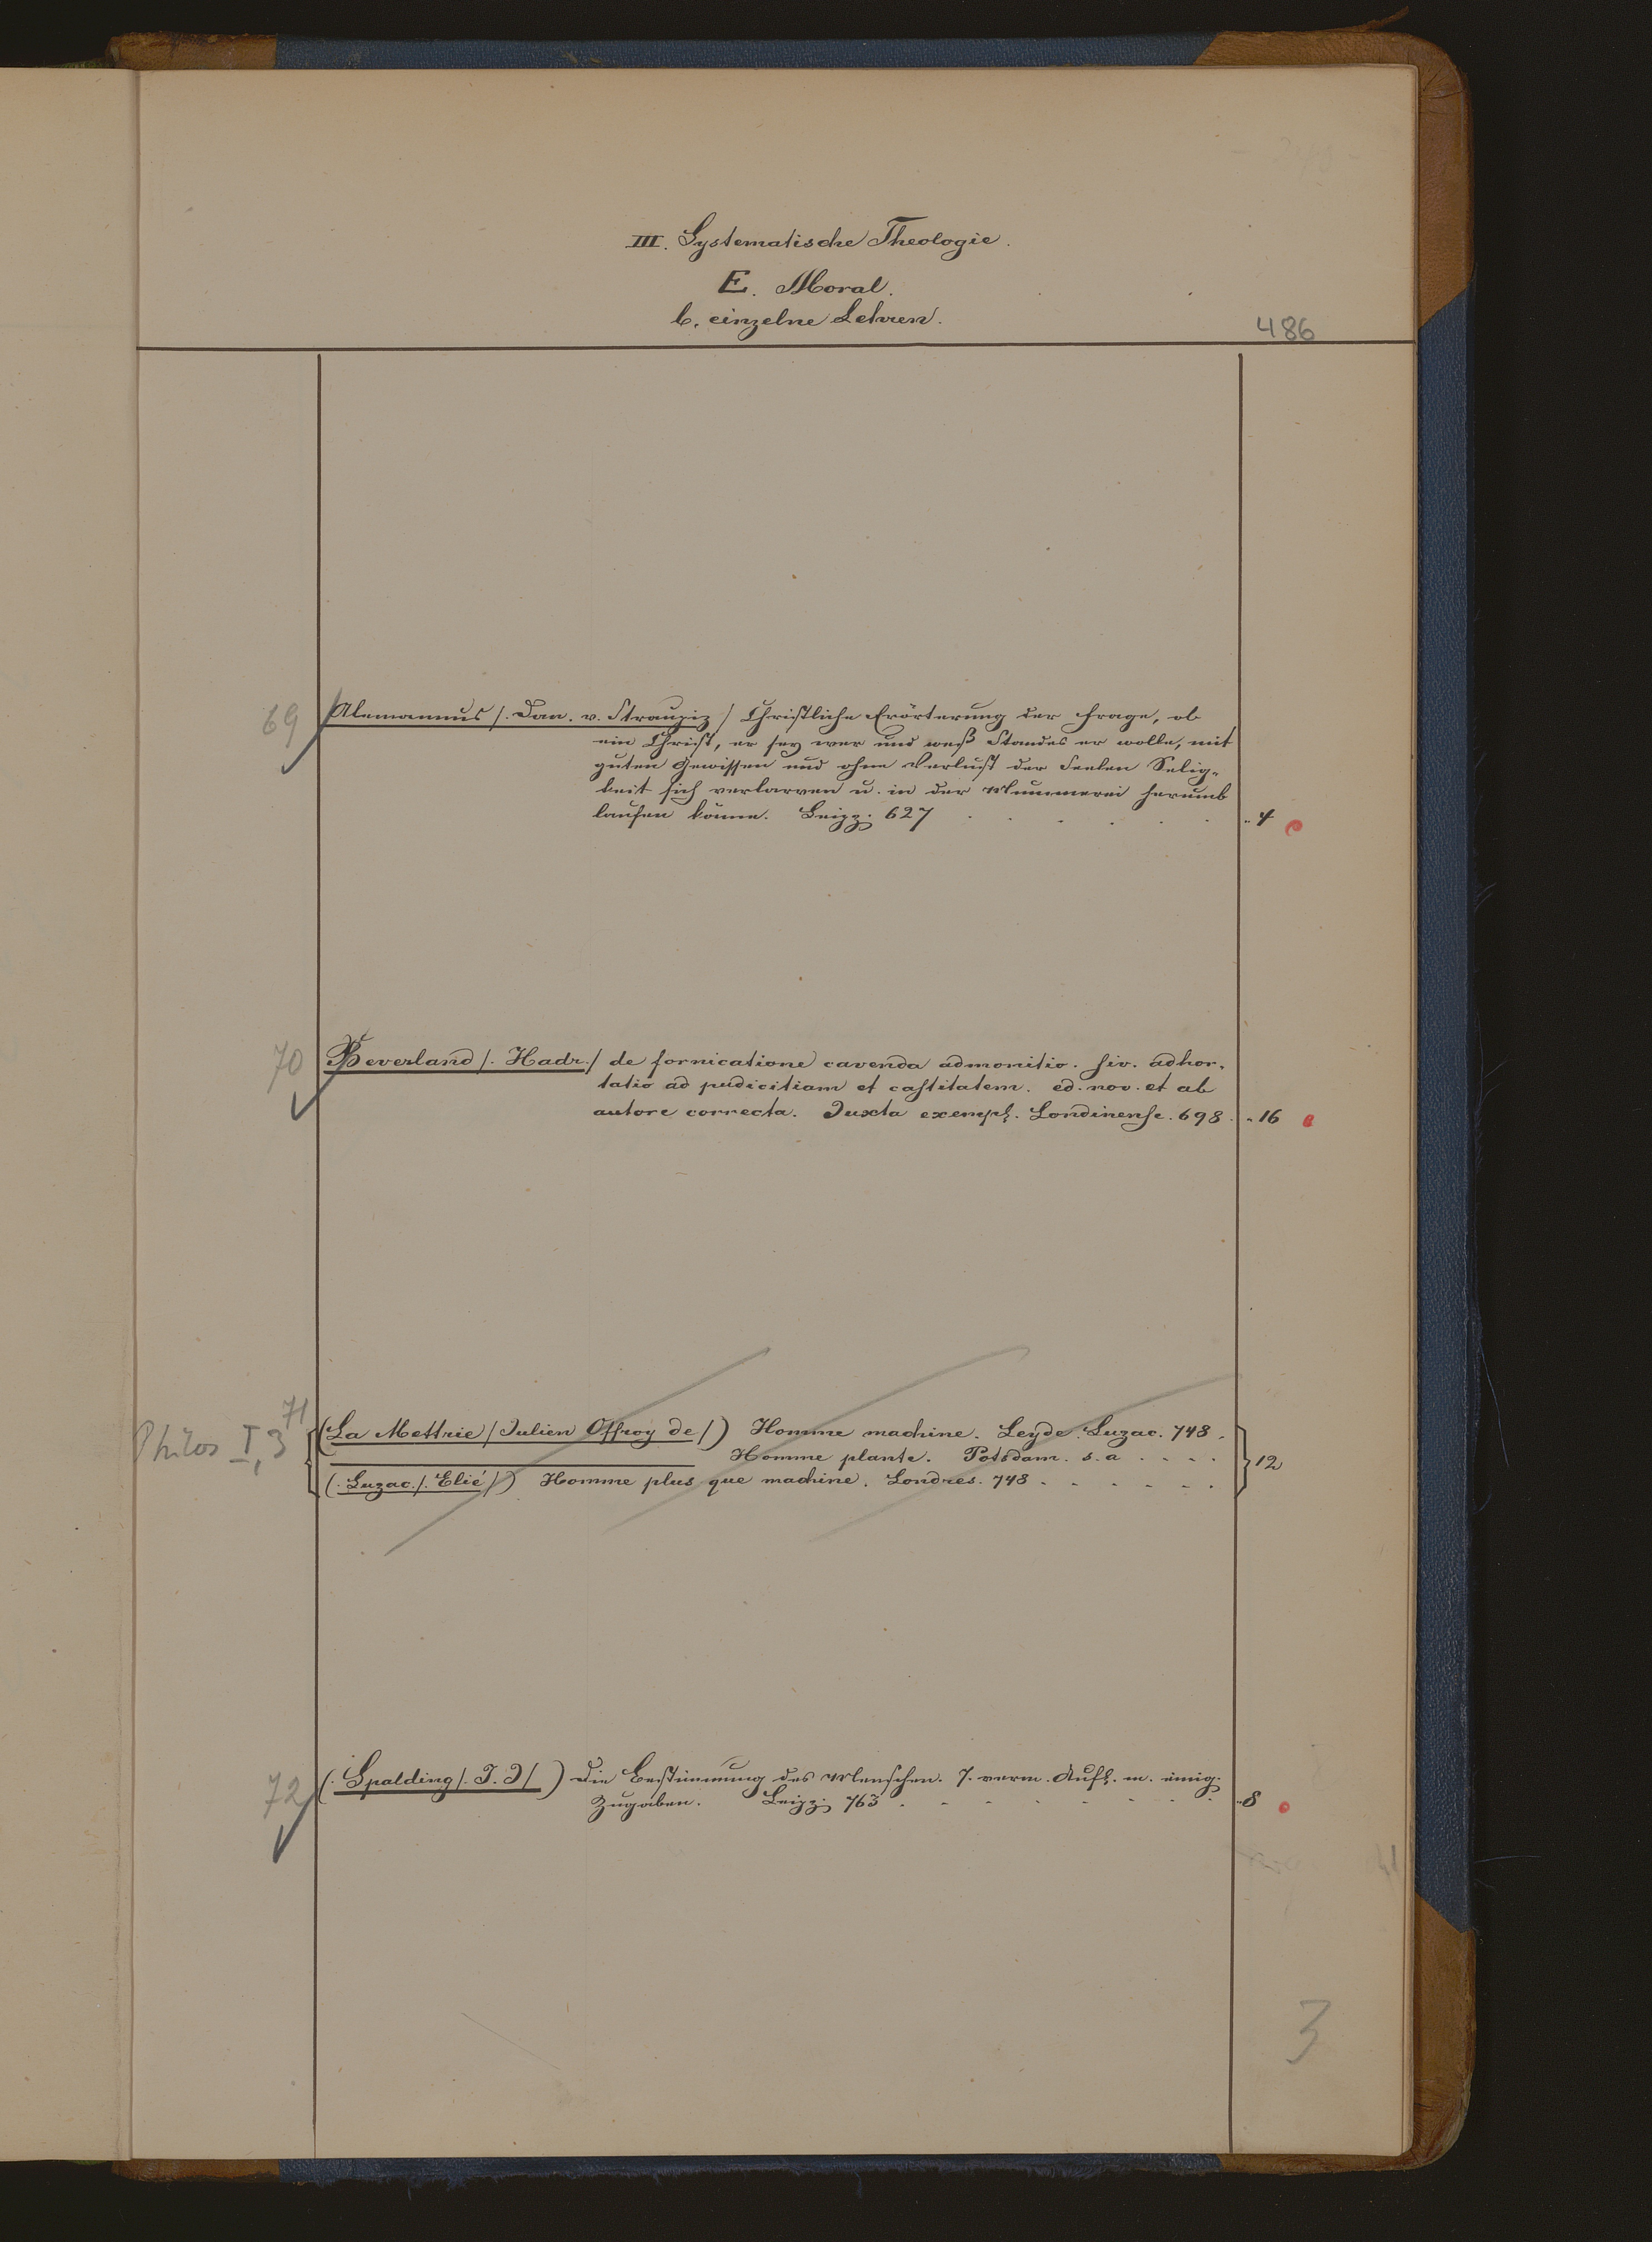 III. Systematische Theologie.
E. Moral.
b. einzelne Lehren.
486
69 Alemannus /. Dan. v. Straupiz / Christliche Erörterung der Frage, ob
ein Christ, er sey wer und weß Standes er wolle, mit
guten Gewissen und ohne Verlust der Seelen Selig-
keit sich verlarven u. in der Mummerei herumb
laufen könne. Leipz. 627 . . . . . . „ 4
70 Beverland /. Hadr. / de fornicatione cavenda admonitio. siv. adhor-
tatio ad pudicitiam et castitatem. ed. nov. et ab
autore correcta. Juxta exempl. Londinense. 698. „ 16
71
Philos I, 3 (La Mettrie / Julien Offroy de /) Homme machine. Leyde. Luzac. 748.
Homme plante. Potsdam. s. a . . . . 12
(. Luzac. /. Elié /) Homme plus que machine. Londres. 748 . . . . . .
72 (. Spalding /. J. J / ) Die Bestimmung des Menschen. 7. verm. Aufl. m. einig.
Zugaben. Leipz. 763 . . . . . . . „ 8
3